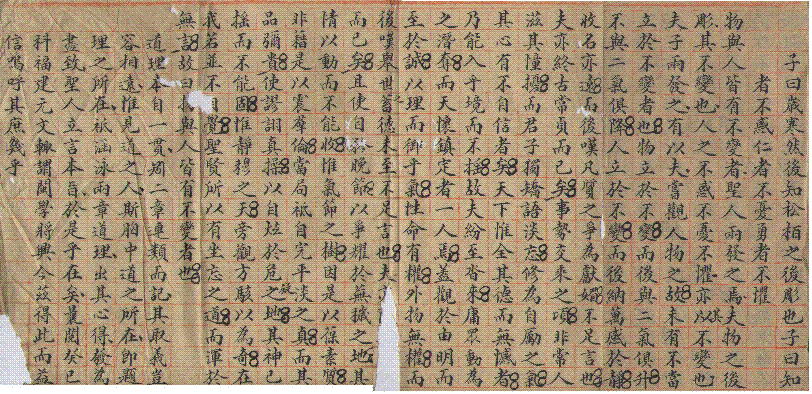 子曰歲寒然後知松柏之後彫也子曰知
者不惑仁者不憂勇者不懼
物與人皆有不變者聖人兩發之焉夫物之後
彫其不變也人之不惑不憂不懼亦以俱不變也
夫子兩發之有以夫當觀人物之故未有不當
立於不變者也物立於不變而後與二氣俱升
不與二氣俱降人立於不變而後納萬感於靜
收名亦遠而後嘆凡質之爭為獻不足言也
夫亦終古當貞而已矣事勢交來之頃非常人
滋其憧擾而君子獨矯語淡忘修為自勵之氣
其心有不自信者矣天下惟全其德而無憾者
乃能入乎境而不搖故夫紛至沓來庸眾動為
之潛奪而天懷鎮定者一人焉蓋觀於由明而
至於誠以理而御乎氣性命有權外物無權而
後嘆舉世蓄德未至不足言也夫
而已矣且使自晚節以爭耀於蕪穢之地其
情以動而不能收惟氣節之樹因是以葆素質
非藉是以震羣倫當局祇自完平淡之真而其
品彌貴使謬詡真操以自炫於危疑之地其神已
搖而不能固惟靜穆之天旁觀方駭以為奇在
我若並不自覺聖賢所以有坐忘之道而渾於
無故曰物與人皆有不變者也
道理本自一貫矧二章連類而記其取義豈
容相遠惟見道之人斯胸中道之所在即題
理之所在祇涵泳兩章道理出其心得發為
盡致聖人立言本旨於是乎在矣曩閱癸巳
科福建元文輒謂閩學將興今茲得此而益
信嗚呼其庶幾乎